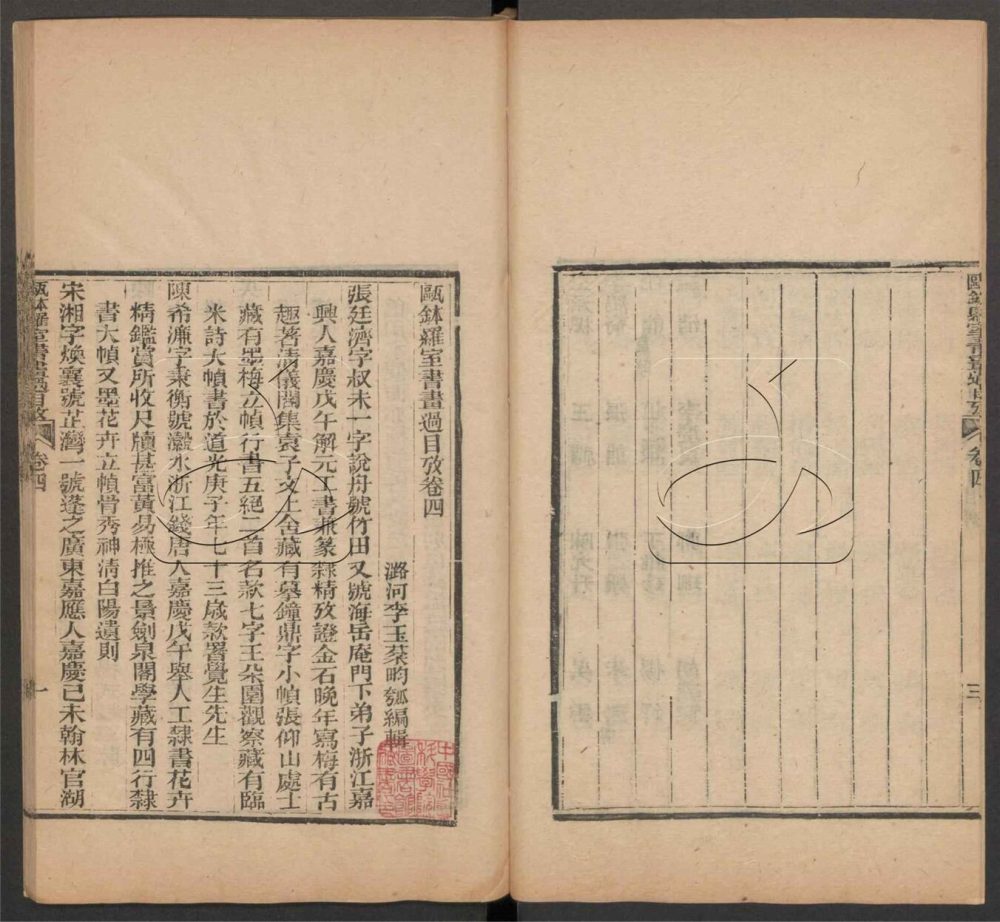 甌鉢羅室書畫過目攷卷四
潞河李玉棻畇瓠編輯
張廷濟字叔未一字說舟號竹田又號海岳庵門下弟子浙江嘉
興人嘉慶戊午解元工書兼篆隸精攷證金石晚年寫梅有古
趣著清儀閣集袁子文上舍藏有摹鐘鼎字小幀張仰山處士
藏有墨梅立幀行書五絕二首名款七字王朵園觀察藏有臨
米詩大幀書於道光庚子年七十三歲款署覺生先生
陳希濂字秉衡號瀫水浙江錢唐人嘉慶戊午舉人工隸書花卉
精鑑賞所收尺牘甚富黃易極推之景劍泉閣學藏有四行隸
書大幀又墨花卉立幀骨秀神清白陽遺則
宋湘字煥襄號芷灣一號逢之廣東嘉應人嘉慶己未翰林官湖
甌鉢羅室書畫過目攷 卷四 一
甌鉢羅室書畫過目攷 卷四 三